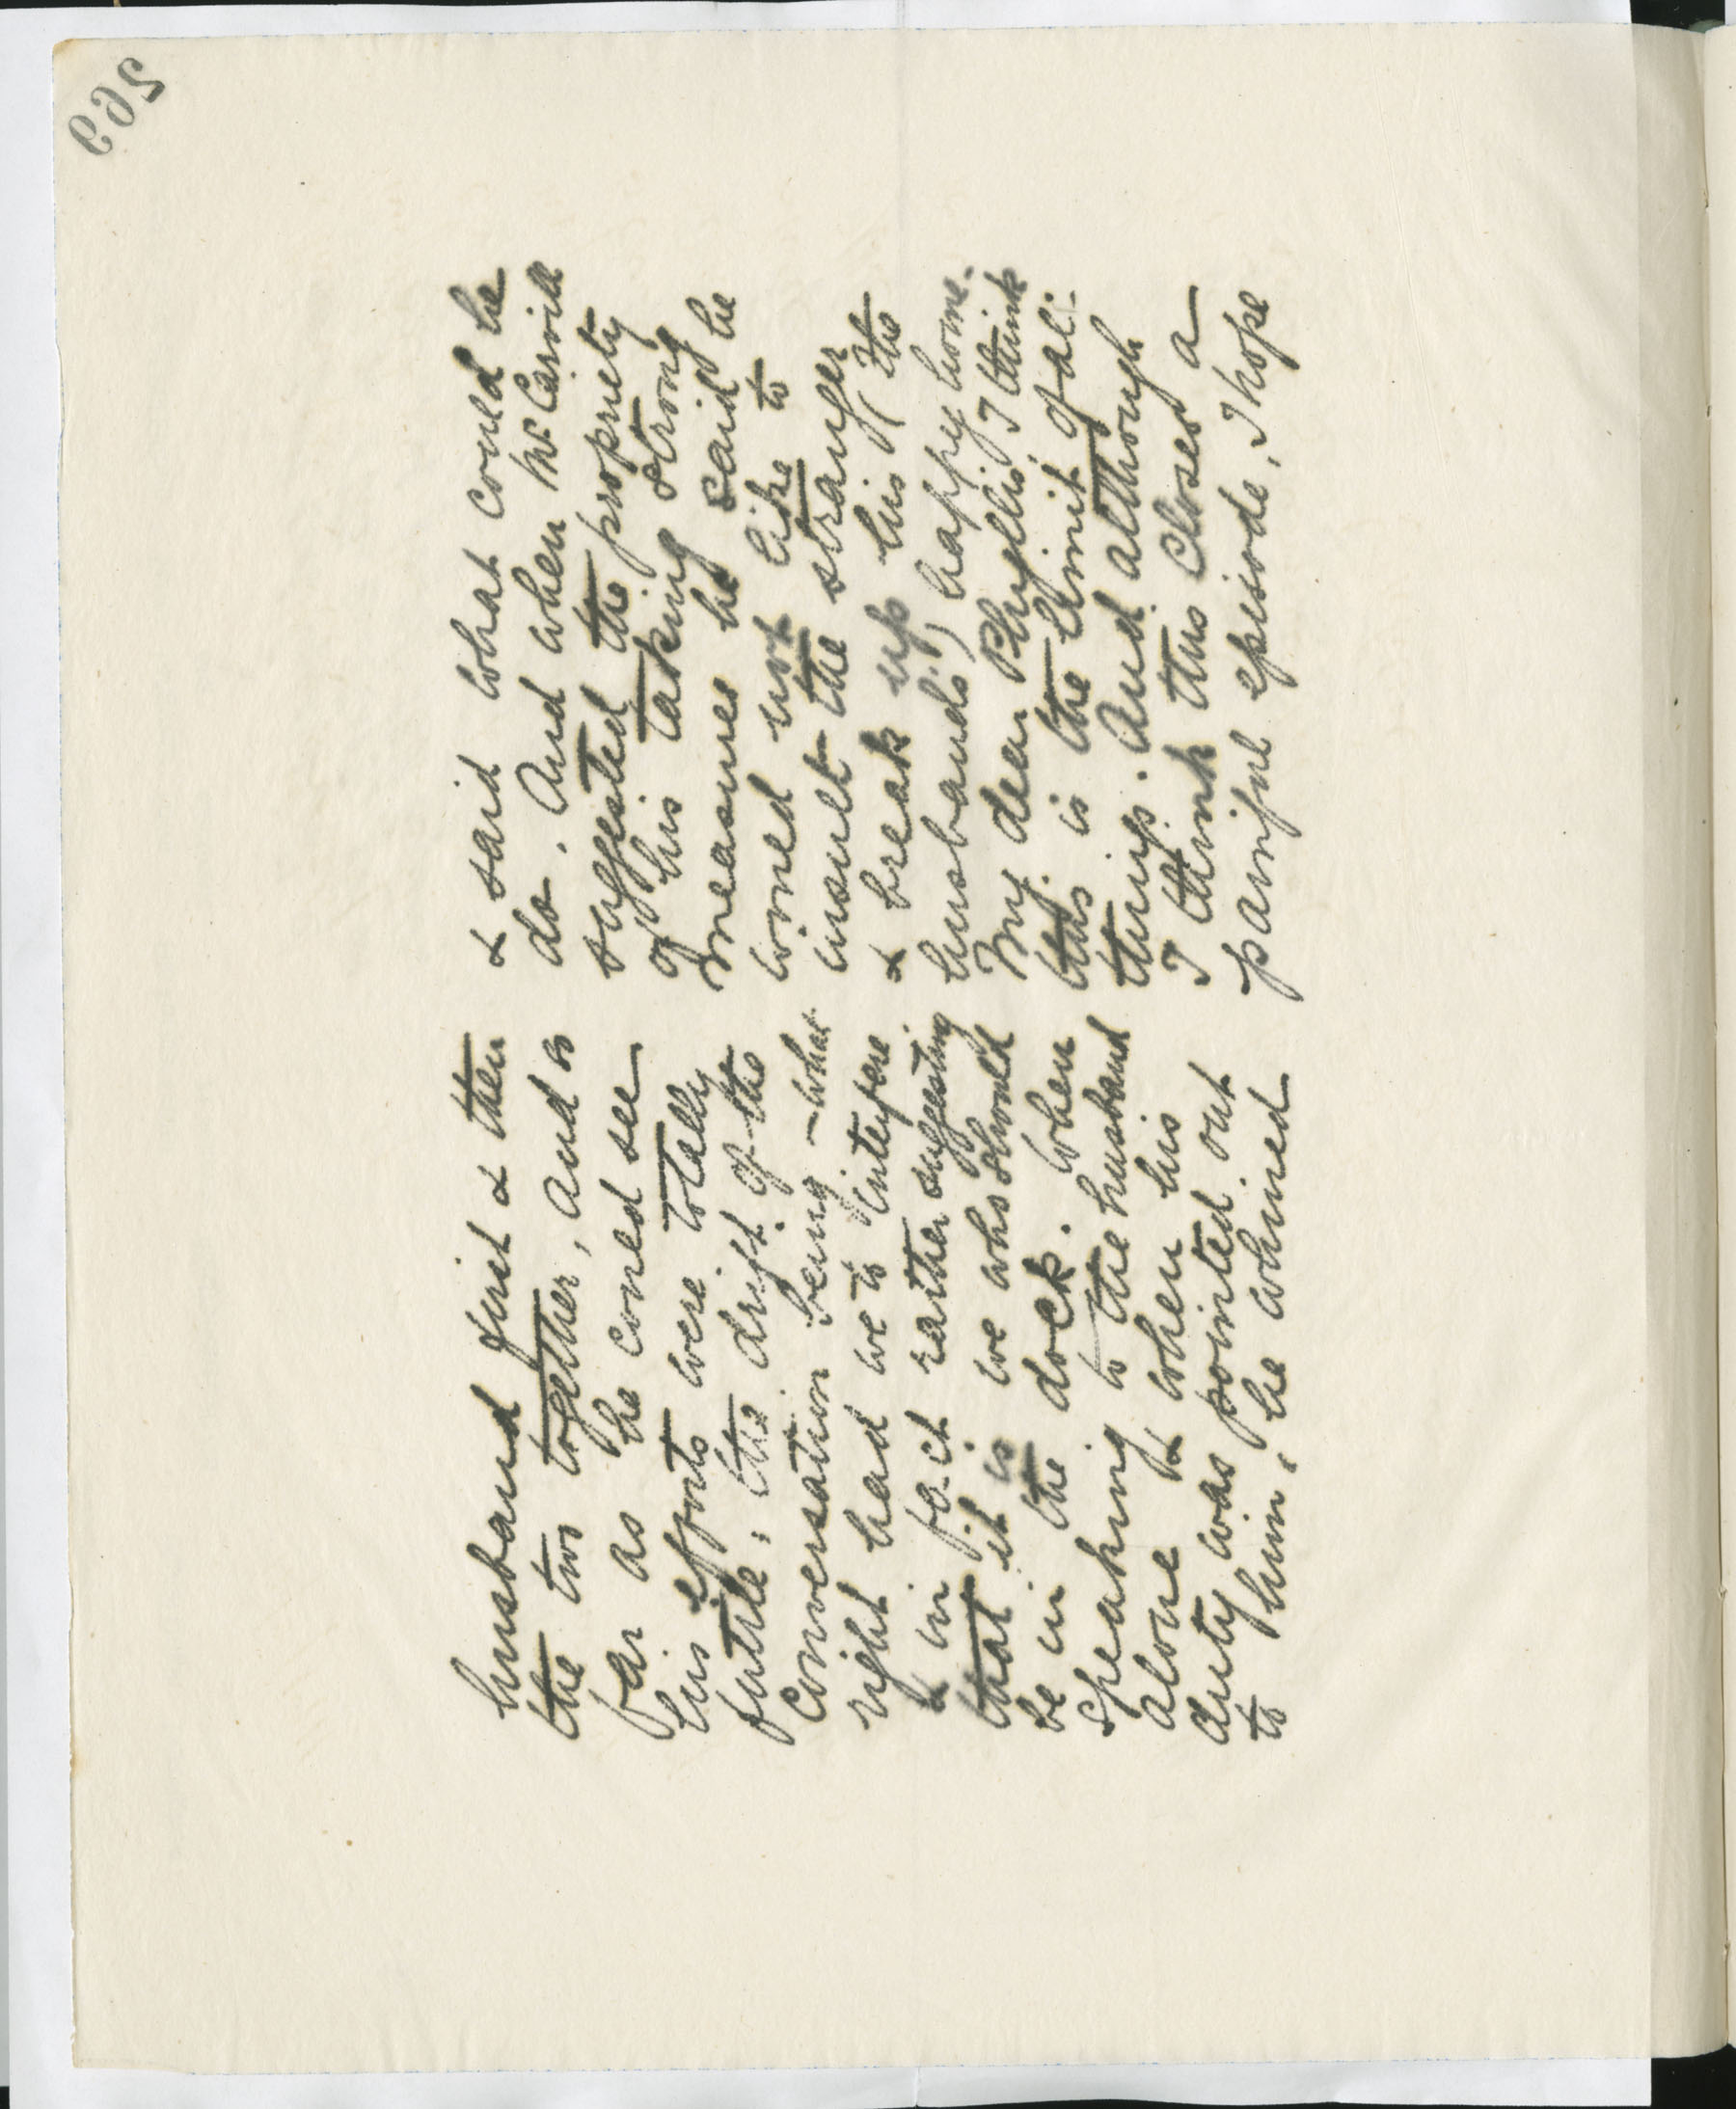 269
husband first & then
the two together, and as
far as he could see
his efforts were totally
futile, the drift of the
conversation being – what
right had we to interfere
& in fact rather suggesting
that it is we who should
be in the dock. When
speaking to the husband
alone & when his
duty was pointed out
to him, he whined
& said what could he
do. And when Mr
suggested the propriety
of his taking strong
measures he said he
would not like to
insult the stranger
& break up his (the
husband's) happy home.
My dear Phyllis, I think
this is the limit of all
things. And although
I think this closes a
painful episode, I hope